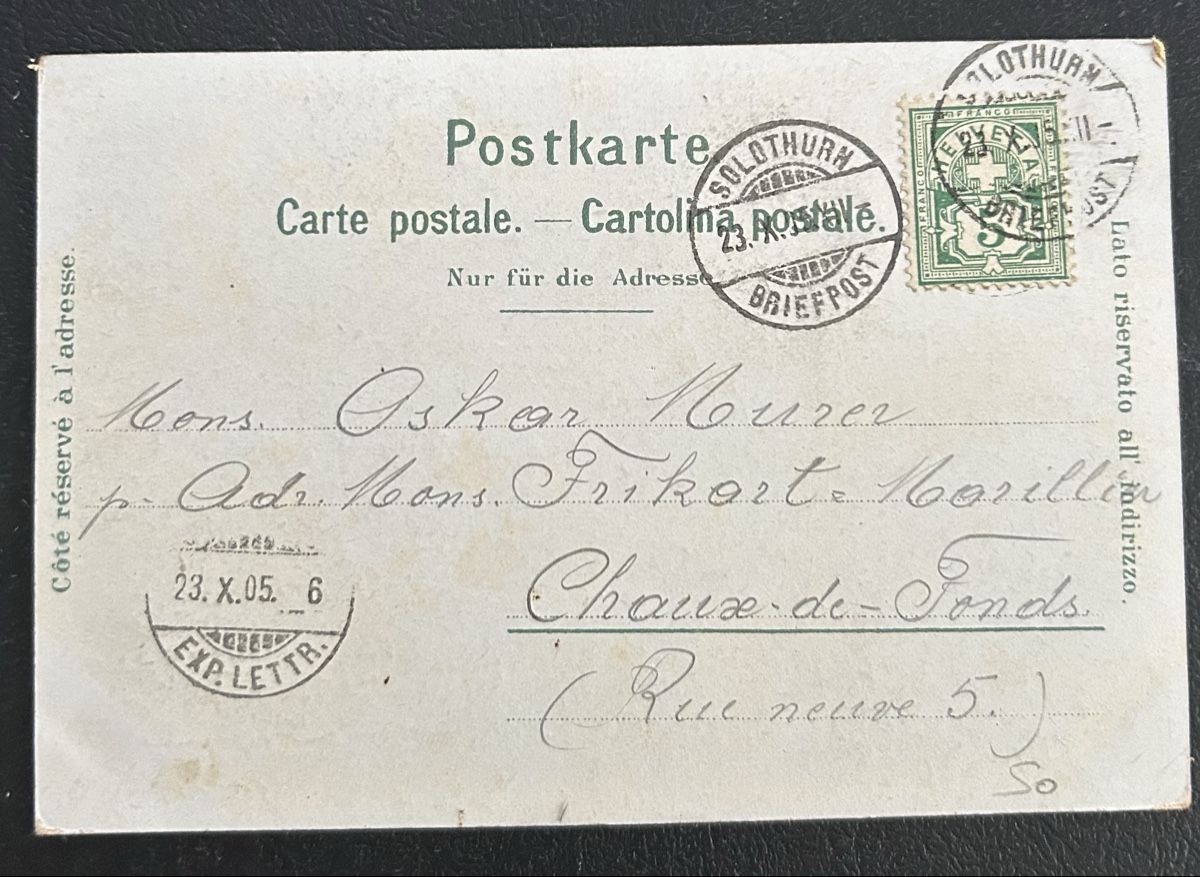 Postkarte
Carte postale. — Cartolina postale.
Nur für die Adresse
SOLOTHURN
23. X. 05. XII -
BRIEFPOST
SOLOTHURN
23. X. 05. XII -
BRIEFPOST
FRANCO
HELVETIA
FRANCO
5
Côté réservé à l'adresse.
Lato riservato all' indirizzo.
Mons. Oskar Murer
p. Adr. Mons. Frikart=Marillier
Chaux-de-Fonds.
(Rue neuve 5.)
23. X. 05. _ 6
EXP. LETTR.
So